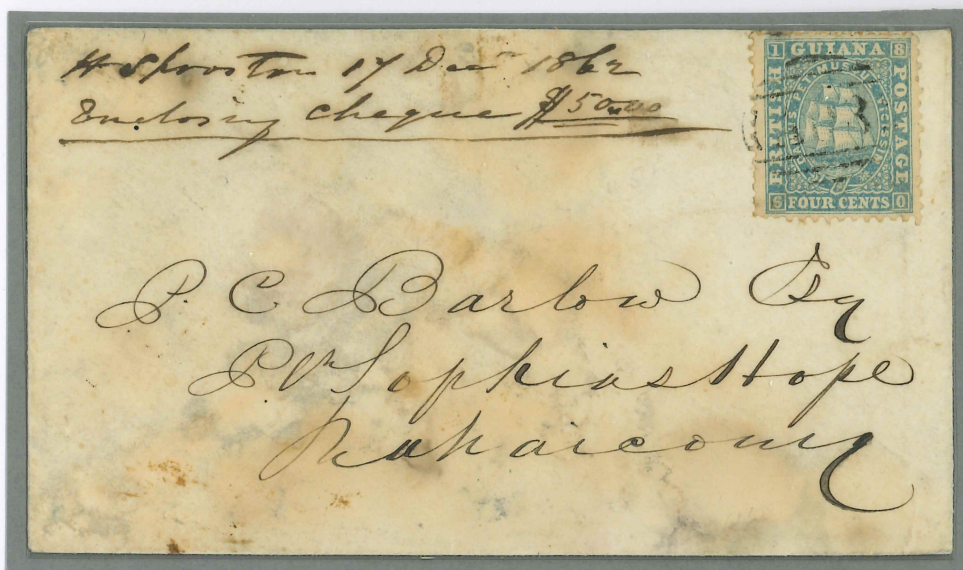 H Sproston 17 Decr 1862
Enclosing cheque $50.00
1 GUIANA 8
BRITISH
POSTAGE
DAMUS PETIMUSQUE VICISSIM
6 FOUR CENTS 0
P. C Barlow Esq
Pln Sophias Hope
Mahaicony